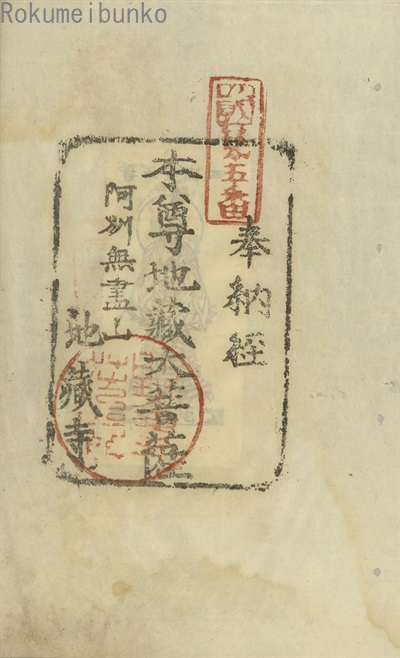 Rokumeibunko
四國第五番
奉納経
本尊地蔵大菩薩
阿州無盡山
地蔵寺